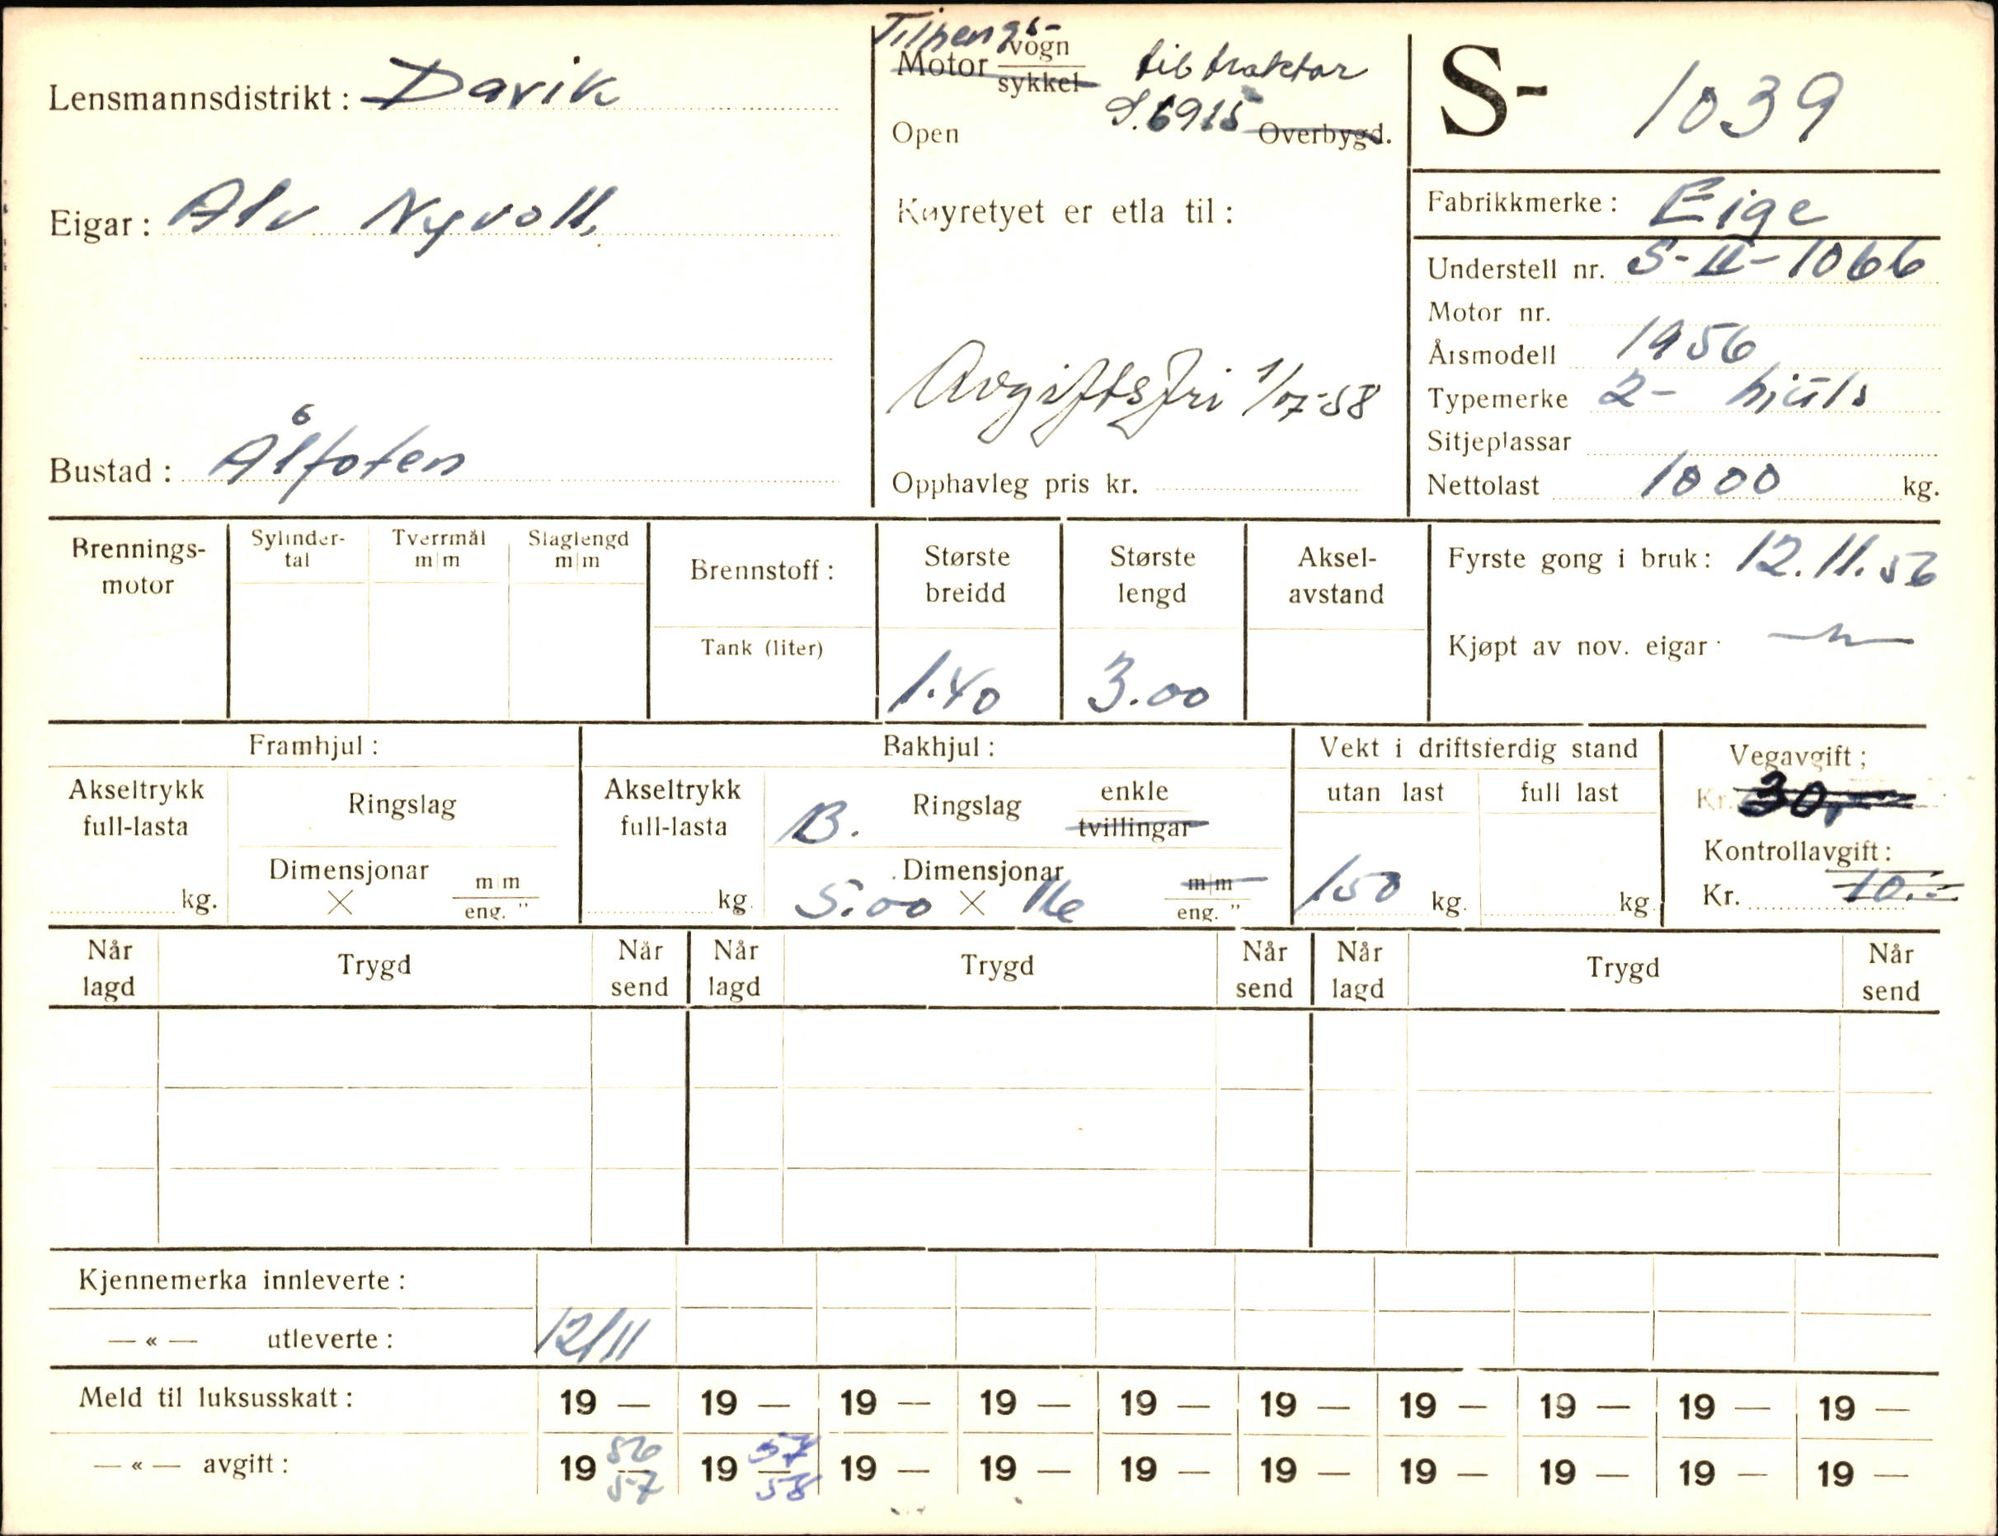 Lensmannsdistrikt: Davik
Eigar: Alv Nyvoll,
Bustad: Ålfoten
Tilhengs-
Motor vogn
sykkel
til traktor
S.6915
Open Overbygd.
Køyretyet er etla til:
Avgiftsfri 1/7-58
Opphavleg pris kr.
S- 1039
Fabrikkmerke: Eige
Understell nr. S-II-1066
Motor nr.
Årsmodell 1956
Typemerke 2- hjuls
Sitjeplassar
Nettolast 1000 kg.
Brennings-
motor
Sylinder-
tal
Tverrmål
m|m
Slaglengd
m|m
Brennstoff:
Tank (liter)
Største
breidd
1.40
Største
lengd
3.00
Aksel-
avstand
Fyrste gong i bruk: 12.11.56
Kjøpt av nov. eigar:
Framhjul:
Akseltrykk
full-lasta
kg.
Ringslag
Dimensjonar
× m|m
eng. "
Bakhjul:
Akseltrykk
full-lasta
kg
B. Ringslag enkle
tvillingar
Dimensjonar
5.00 × 16 m|m
eng. "
Vekt i driftsferdig stand
utan last
150 kg.
full last
kg
Vegavgift:
Kr. 30,
Kontrollavgift:
Kr. 10.-
Når
lagd
Trygd
Når
send
Når
lagd
Trygd
Når
send
Når
lagd
Trygd
Når
send
Kjennemerka innleverte:
— « — utleverte: 12/11
Meld til luksusskatt: 19 — 19 — 19 — 19 — 19 — 19 — 19 — 19 — 19 — 19 —
— « — avgift: 19 56/57 19 57/58 19 — 19 — 19 — 19 — 19 — 19 — 19 — 19 —